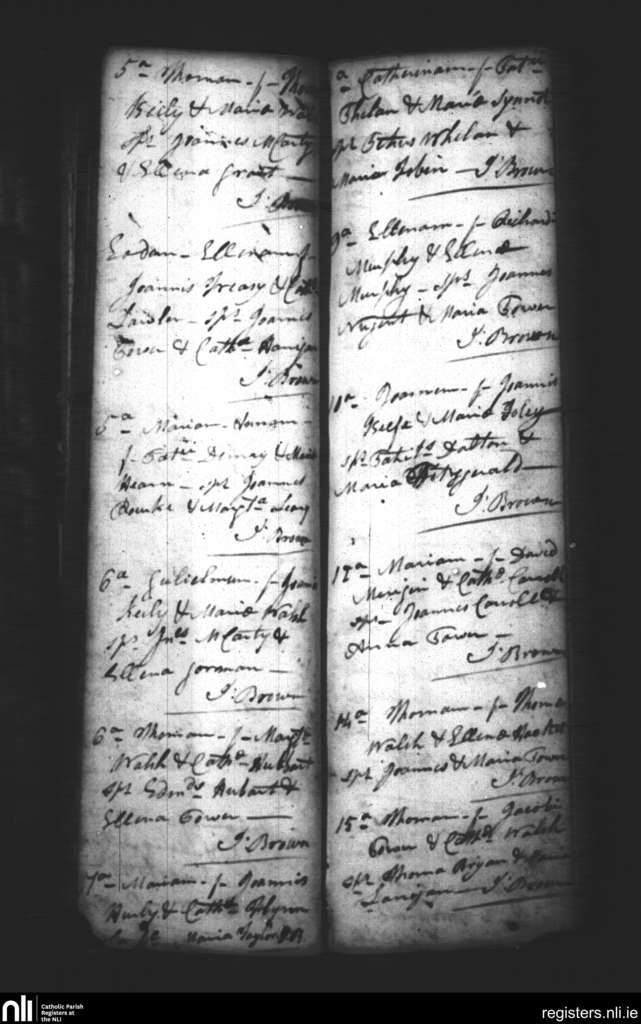 5a Thomam - f- Tho
Keily & Maria
spr Joannes McCarty
& Ellena Grant
J. Brow
Eodem - Ellenam f-
Joannis Treasy & Cath
Lawler - spr Joannes
Power & Catha Hanigan
J. Brown
5a Mariam - Honoram -
f- Patrii & Maria
Hearn - spr Joannes
Rourke & Margta Leary
J. Brown
6a Gulielmum - f- Joannis
Keily & Maria Walsh
spr Jnes McCarty &
Ellena Gorman
J. Brown
6a Thomam - f-
Walsh & Catha Hubart
spr Edmds Hubart &
Ellena Power
J. Brown
7a Mariam - f- Joannis
Hurly & Catha Flynn
Maria Taylor JB
a Catherinam - f- Patrii
Phelan & Maria Synnot
spr Petrus Whelan &
Maria Tobin - J. Brown
9a Ellenam - f- Richardi
Murphy & Ellena
Murphy - sprs Joannes
Nugent & Maria Power
J. Brown
11a Joannem - f- Joannis
Keefe & Maria Foley
spr Patrits Dalton &
Maria Fitzgerald
J. Brown
12a Mariam - f- David
& Catha Carroll
spr - Joannes Carroll &
Anna Power -
J. Brown
14a Thomam - f- Thoma
Walsh & Ellena
spr Joannes & Maria Power
J. Brown
15a Thomam - f- Jacobi
Power & Catha Walsh
spr Thoma Bryan & Maria
Lanigan - J. Brown
nli
Catholic Parish
Registers at
the NLI
registers.nli.ie